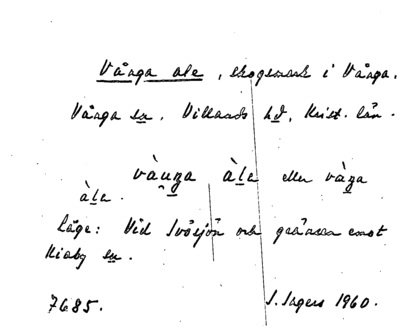 Vånga ale, skogsmark i Vånga.
Vånga sn. Villands hd, Krist. län.
vàuŋa àle eller vàŋa
àle.
Läge: Vid Ivösjön och gränsen emot
Kiaby sn.
7685. I. Ingers 1960.